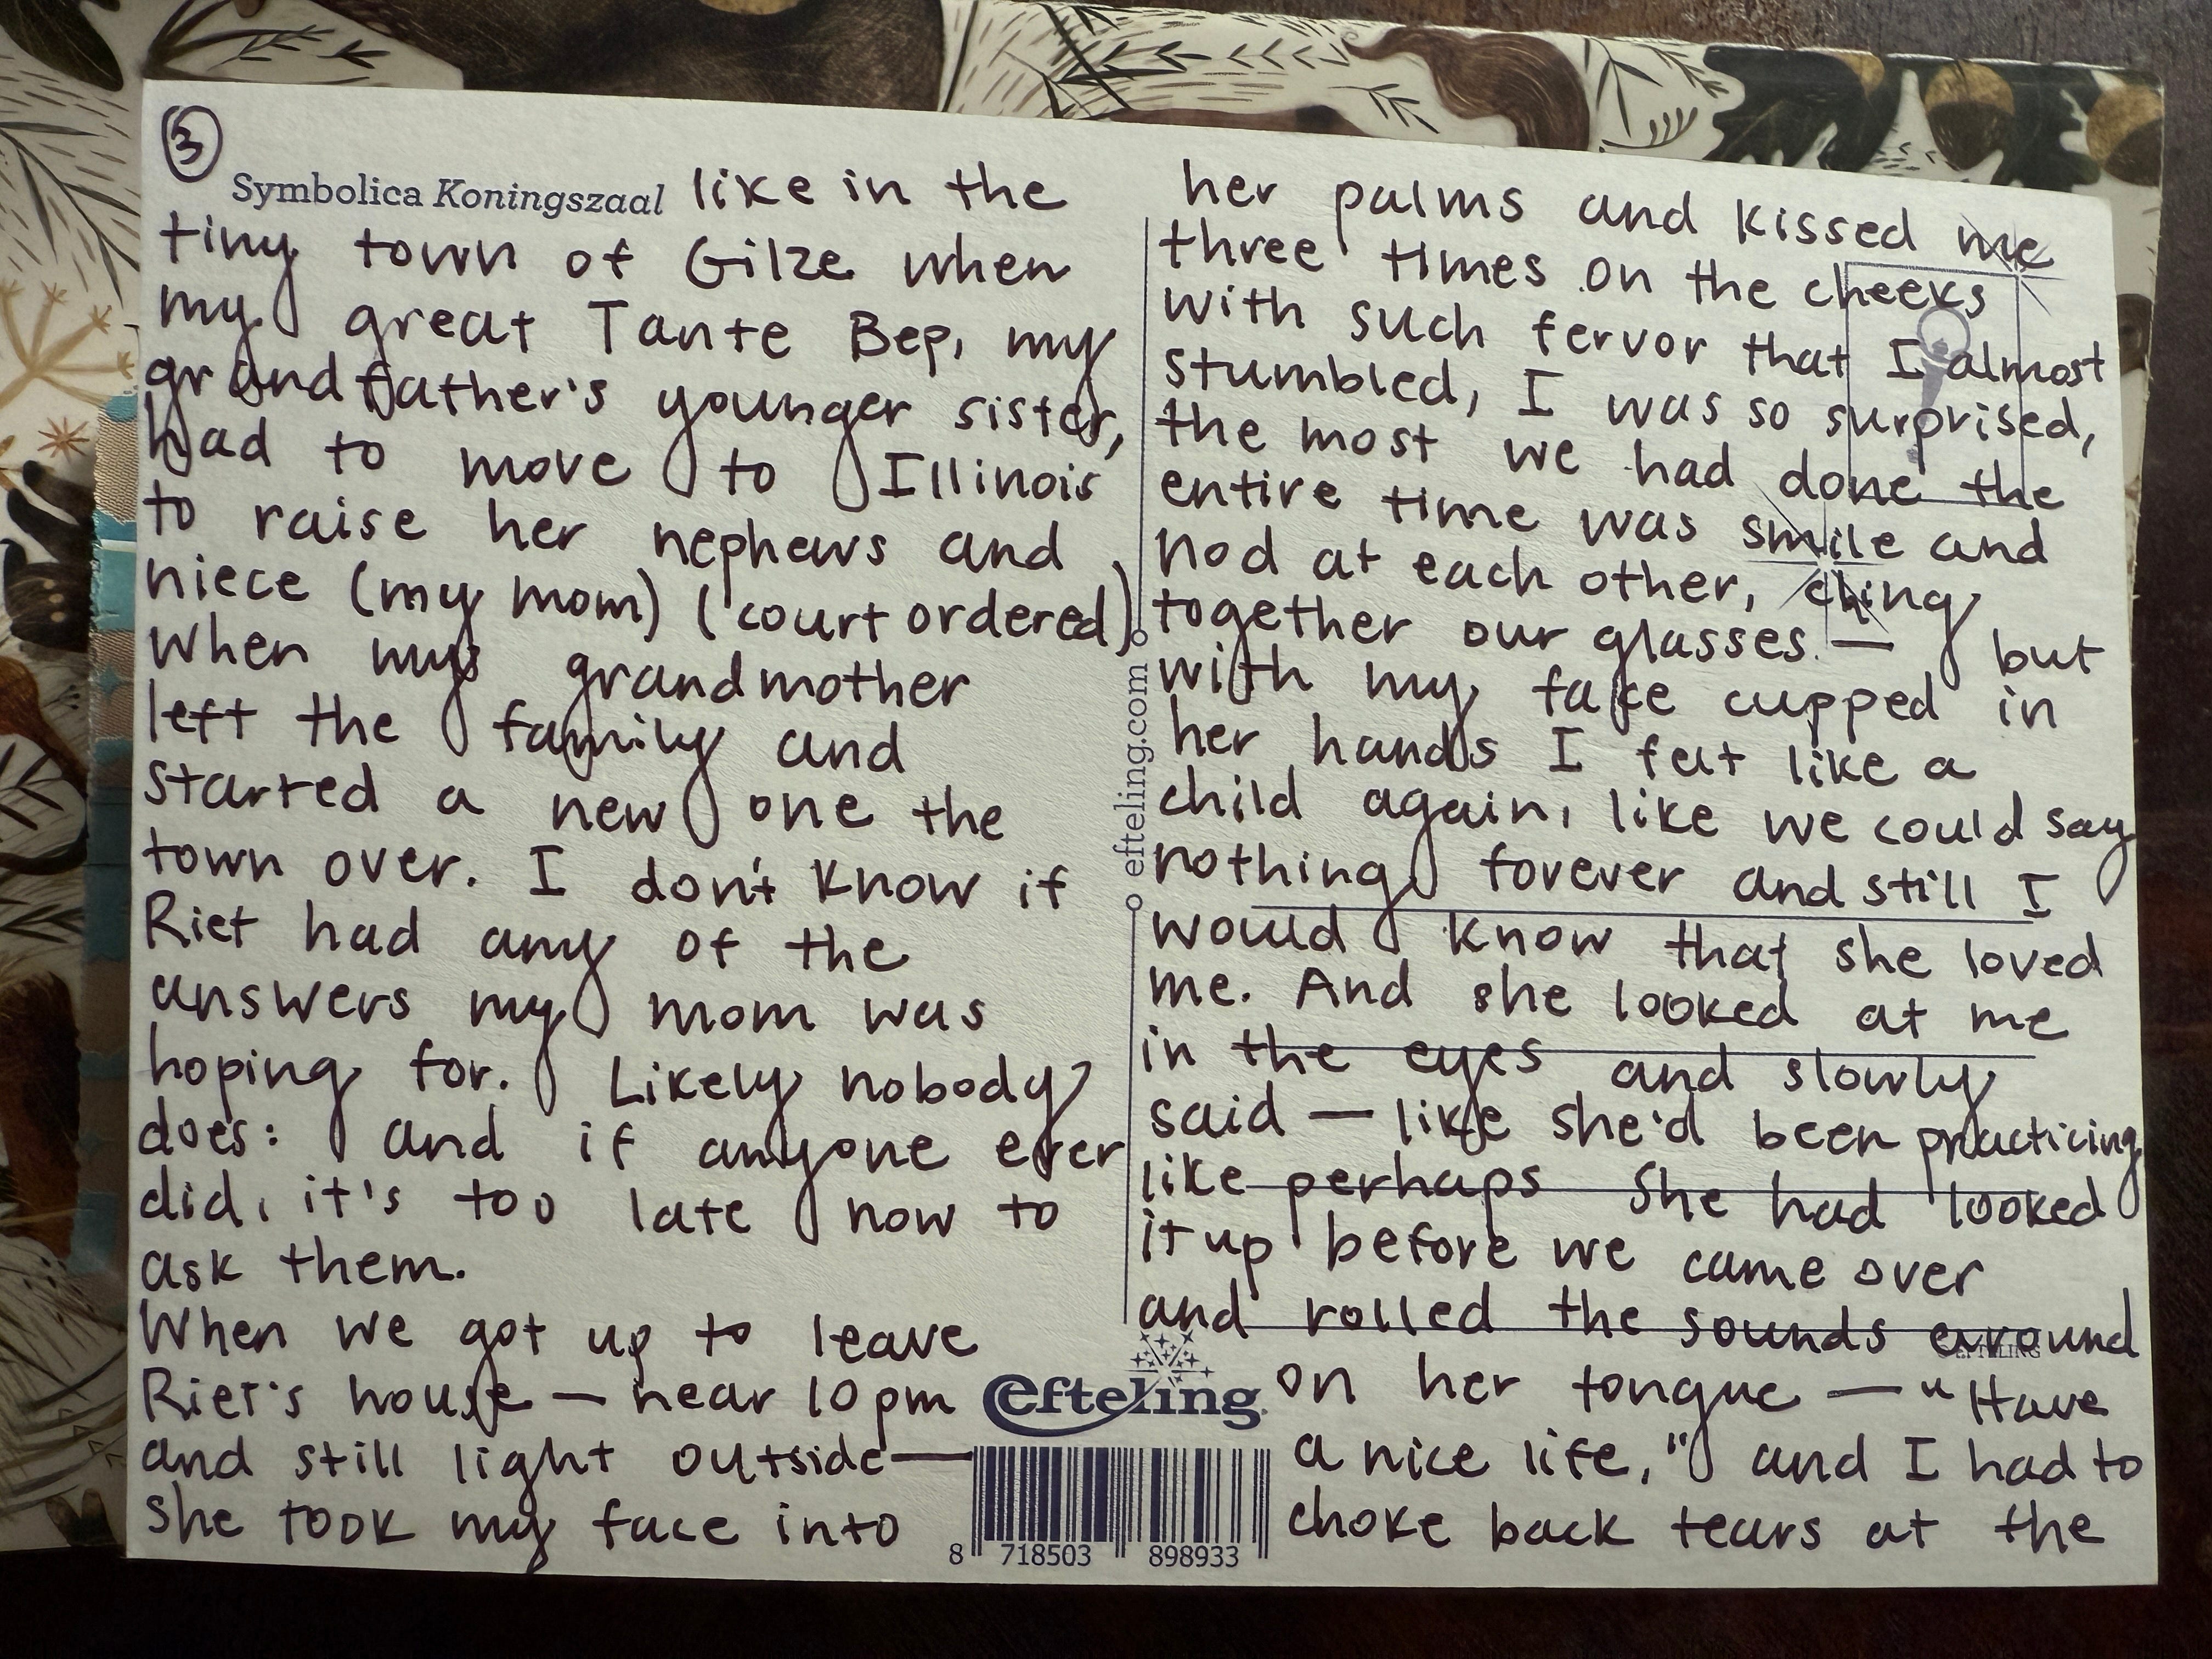 3
Symbolica Koningszaal like in the
tiny town of Gilze when
my great Tante Bep, my
grandfather's younger sister,
had to move to Illinois
to raise her nephews and
niece (my mom) (court ordered)
when my grandmother
left the family and
started a new one the
town over. I don't know if
Riet had any of the
answers my mom was
hoping for. Likely nobody
does: and if anyone ever
did, it's too late now to
ask them.
When we got up to leave
Riet's house — near 10pm
and still light outside —
she took my face into
her palms and kissed me
three times on the cheeks
with such fervor that I almost
stumbled, I was so surprised,
the most we had done the
entire time was smile and
nod at each other, cling
together our glasses — but
with my face cupped in
her hands I felt like a
child again, like we could say
nothing forever and still I
would know that she loved
me. And she looked at me
in the eyes and slowly
said — like she'd been practicing
like perhaps she had looked
it up before we came over
and rolled the sounds around
on her tongue — "Have
a nice life," and I had to
choke back tears at the
efteling.com
efteling
8 718503 898933
© EFTELING